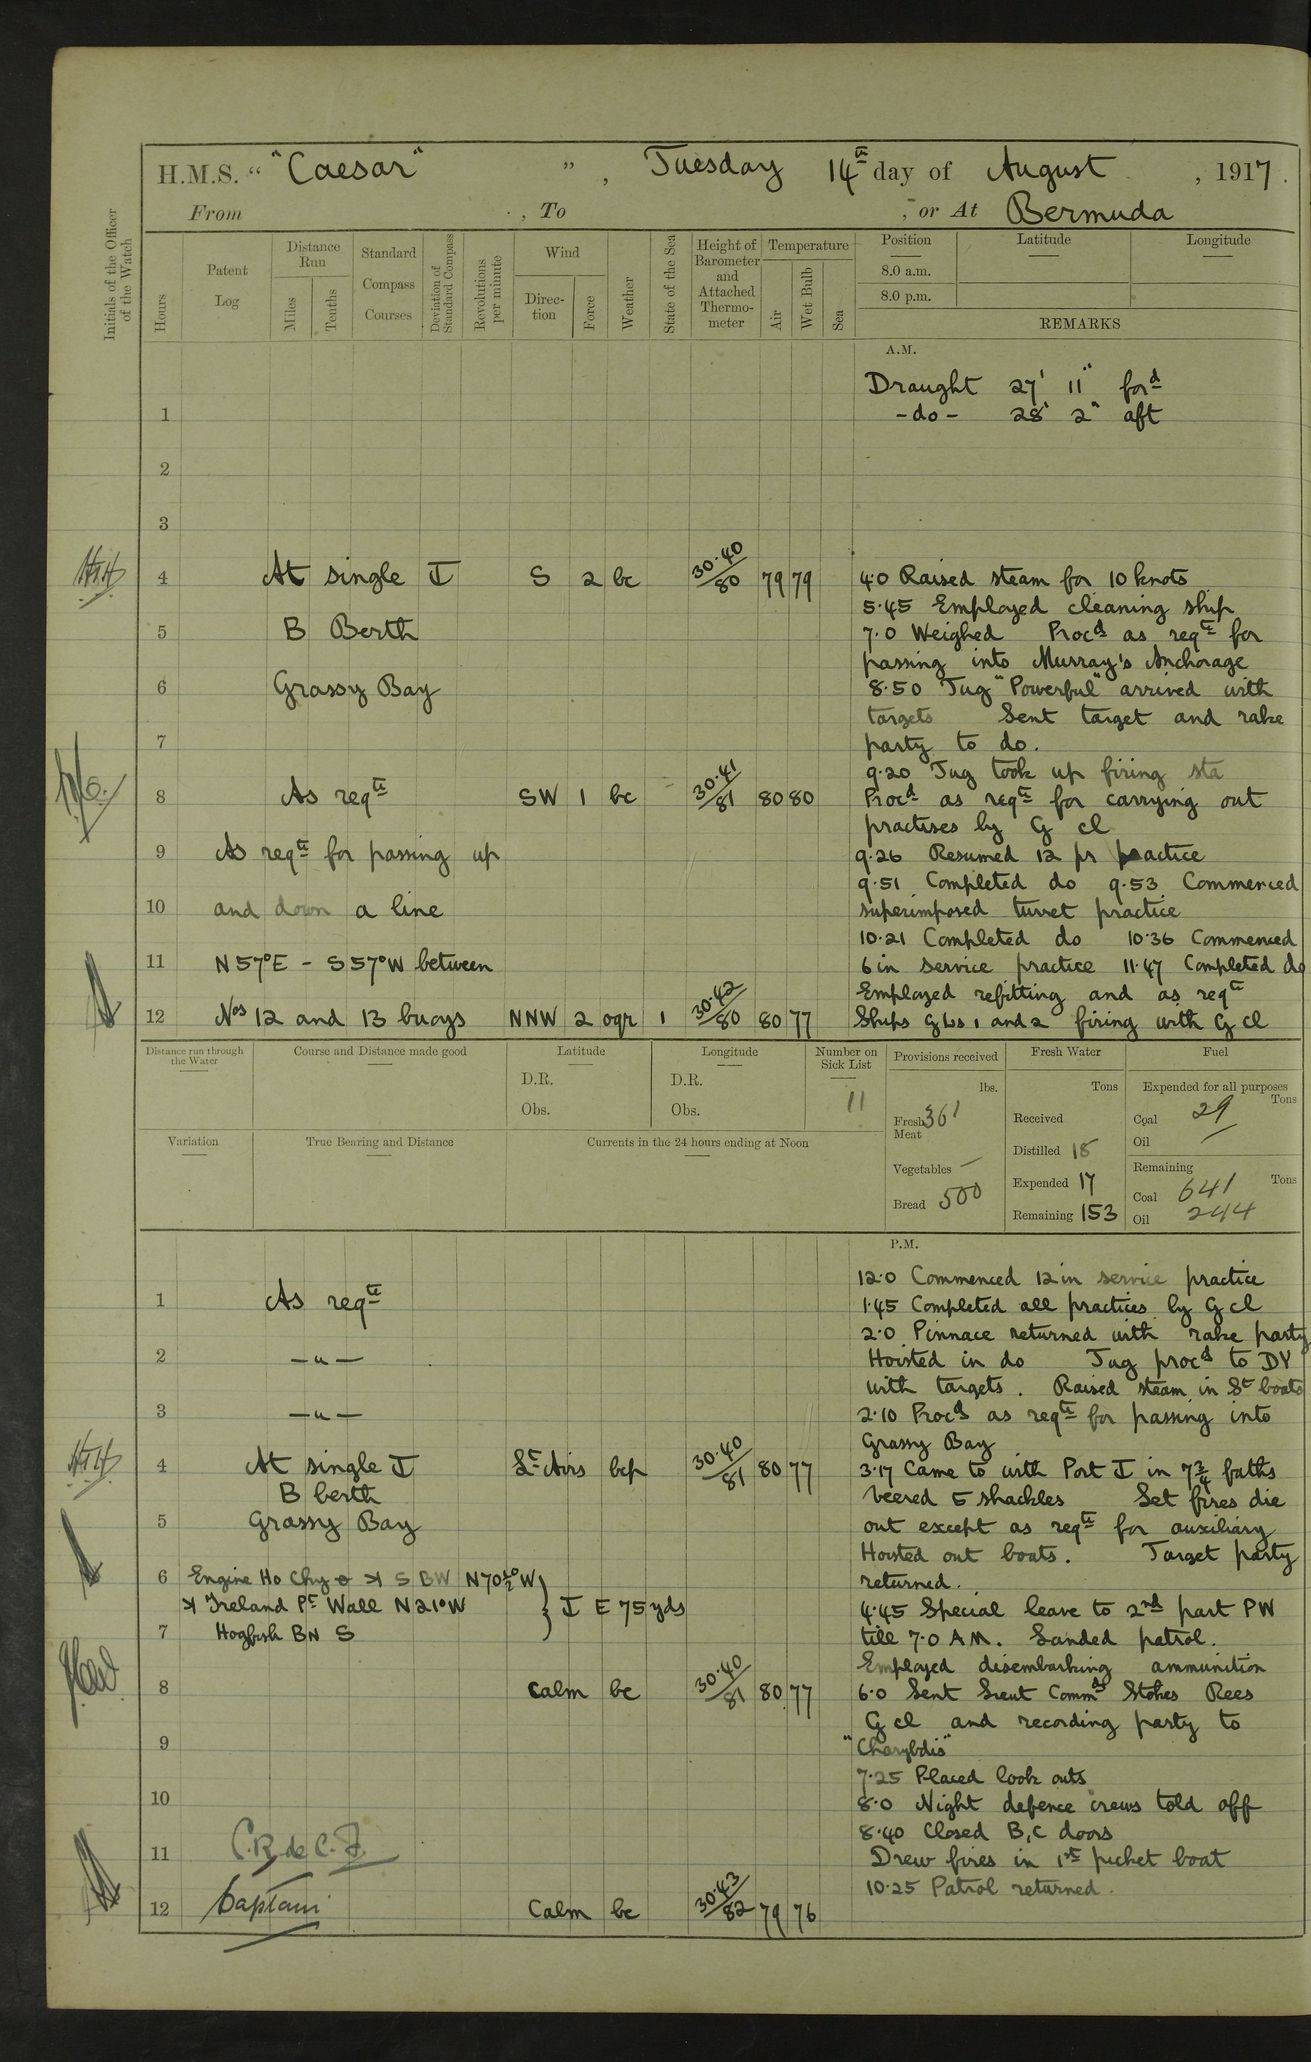 H.M.S. " "Caesar" ", Tuesday 14th day of August, 1917.
From , To , or At Bermuda
Initials of the Officer of the Watch
Hours
Patent Log
Distance Run
Miles
Tenths
Standard Compass Courses
Deviation of Standard Compass
Revolutions per minute
Wind
Direction
Force
Weather
State of the Sea
Height of Barometer and Attached Thermometer
Temperature
Air
Wet Bulb
Sea
Position
Latitude
Longitude
8.0 a.m.
8.0 p.m.
REMARKS
A.M.
Draught 27' 11" ford
1 -do- 28' 2" aft
2
3
4 At single I S 2 bc 30.40/80 79 79 4.0 Raised steam for 10 knots
5.45 Employed cleaning ship
5 B Berth 7.0 Weighed Procd as reqte for
passing into Murray's Anchorage
6 Grassy Bay 8.50 Tug "Powerful" arrived with
targets Sent target and rake
7 party to do.
9.20 Tug took up firing sta
8 As reqte SW 1 bc - 30.41/81 80 80 Procd as reqte for carrying out
practises by G cl
9 As reqte for passing up 9.26 Resumed 12 pr practice
9.51 Completed do 9.53 Commenced
10 and down a line superimposed turret practice
10.21 Completed do 10.36 Commenced
11 N57°E - S57°W between 6 in service practice 11.47 Completed do
Employed refitting and as reqte
12 Nos 12 and 13 buoys NNW 2 oqr 1 30.42/80 80 77 Ships GLs 1 and 2 firing with G cl
Distance run through the Water
Course and Distance made good
Latitude
D.R.
Obs.
Longitude
D.R.
Obs.
Number on Sick List
11
Provisions received
lbs.
Fresh Meat 361
Vegetables -
Bread 500
Fresh Water
Tons
Received
Distilled 18
Expended 17
Remaining 153
Fuel
Expended for all purposes
Tons
Coal 29
Oil -
Remaining
Tons
Coal 641
Oil 244
Variation
True Bearing and Distance
Currents in the 24 hours ending at Noon
P.M.
12.0 Commenced 12 in service practice
1 As reqte 1.45 Completed all practices by G cl
2.0 Pinnace returned with rake party
2 -"- Hoisted in do Tug procd to DY
with targets. Raised steam in St boats
3 -"- 2.10 Procd as reqte for passing into
Grassy Bay
4 At single I Lt Airs bcp 30.40/81 80 77 3.17 Came to with Port I in 7¾ faths
B berth veered 5 shackles Set fires die
5 Grassy Bay out except as reqte for auxiliary
Hoisted out boats. Target party
6 Engine Ho Chy S BW N70½°W returned.
Ireland Pt Wall N21°W } I E 75 yds 4.45 Special leave to 2nd part PW
7 Hogfish BN S till 7.0 AM. Landed patrol.
Employed disembarking ammunition
8 Calm bc 30.40/81 80 77 6.0 Sent Lieut Commds Stokes Rees
G cl and recording party to
9 "Charybdis"
7.25 Placed look outs
10 8.0 Night defence crews told off
8.40 Closed B, C doors
11 C.R. de C. F. Drew fires in 1st picket boat
10.25 Patrol returned.
12 Captain Calm bc 30.43/82 79 76